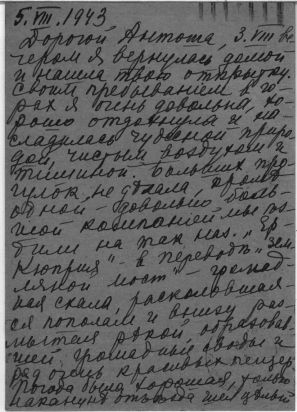 5.VIII.1943
Дорогой Антоша, 3.VIII ве
чером я вернулась домой
и нашла твою открытку.
Своим пребыванием в го-
рах я очень довольна, хо-
рошо отдохнула и на-
сладилась чудесной приро-
дой, чистым воздухом и
тишиной. Больших про-
гулок не делала, кроме
одной – довольно боль-
шой компанией мы хо-
дили на так наз. „Ер
Кюприя" – в переводе „Зем
ляной мост" – громад-
ная скала, расколовшая-
ся пополам и внизу раз-
мытая рекой, образовав-
шей громадный своды и
ряд очень красивых пещер.
Погода была хорошая, только
накануне отъезда шел целый